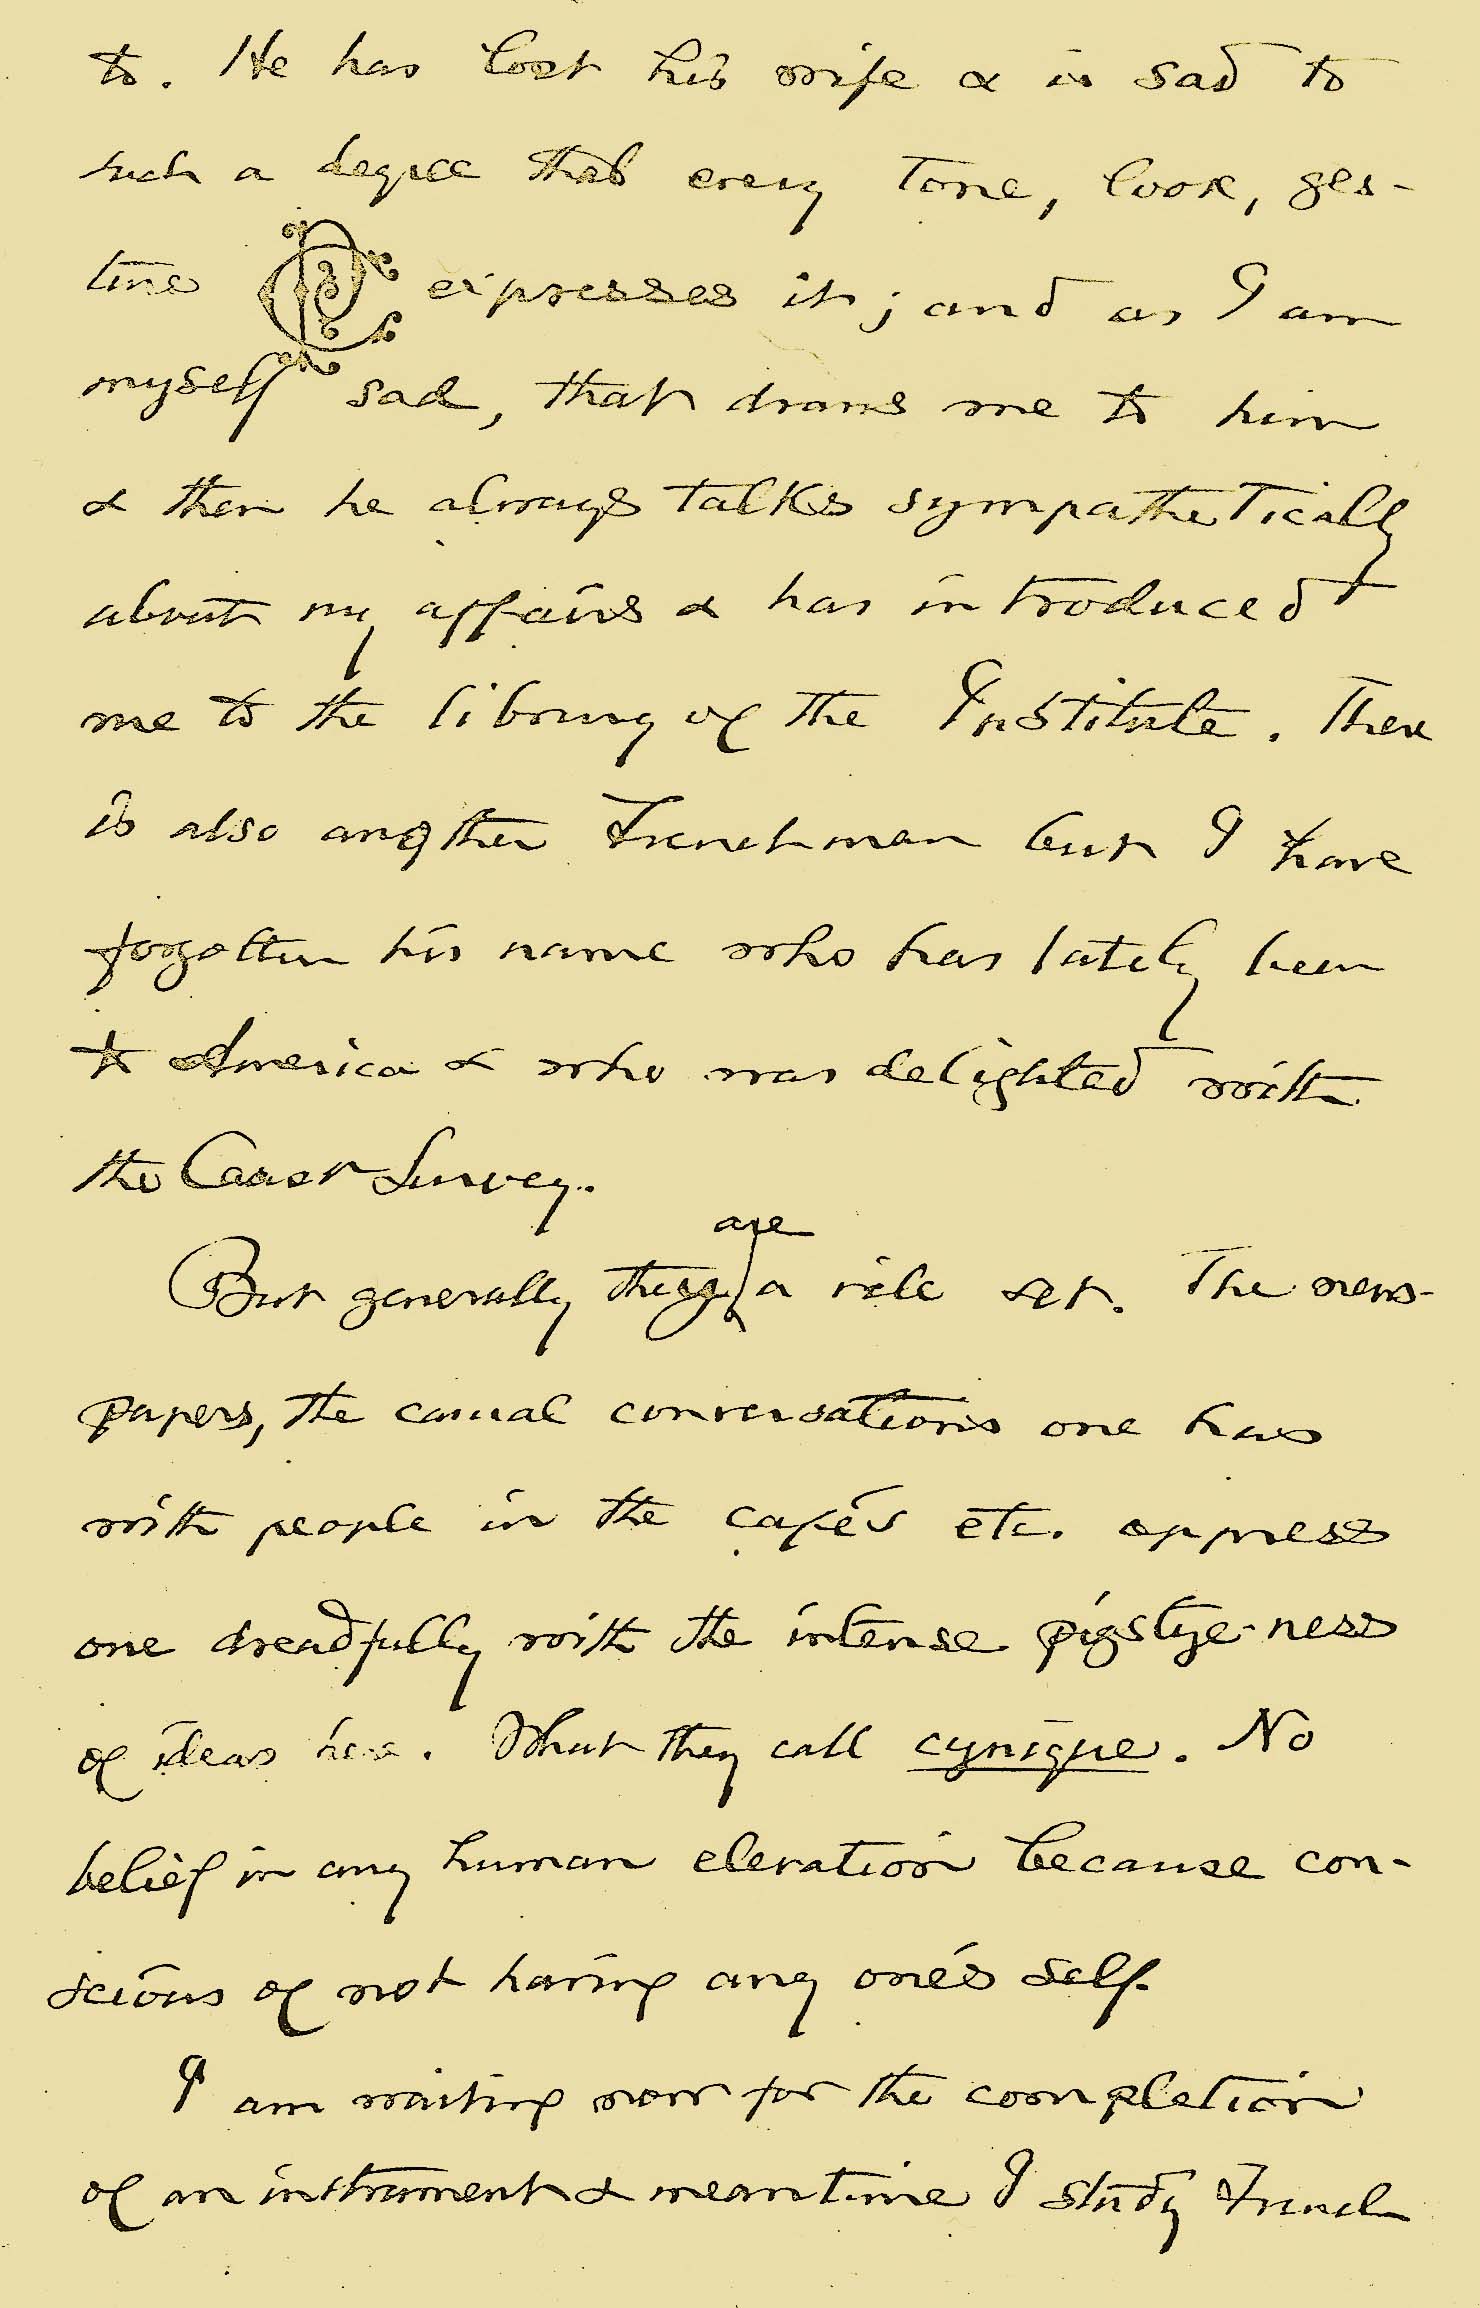 to. He has lost his wife & is sad to
such a degree that every tone, look, ges-
ture expresses it; and as I am
myself sad, that draws me to him
& then he always talks sympathetically
about my affairs & has introduced
me to the library of the Institute. There
is also another Frenchman but I have
forgotten his name who has lately been
to America & who was delighted with
the Coast Survey.
are
But generally they a vile set. The news-
papers, the casual conversations one has
with people in the cafés etc. oppress
one dreadfully with the intense pigstye-ness
of ideas here. What they call cynique. No
belief in any human elevation because con-
scious of not having any one's self.
I am waiting now for the completion
of an instrument & meantime I study French